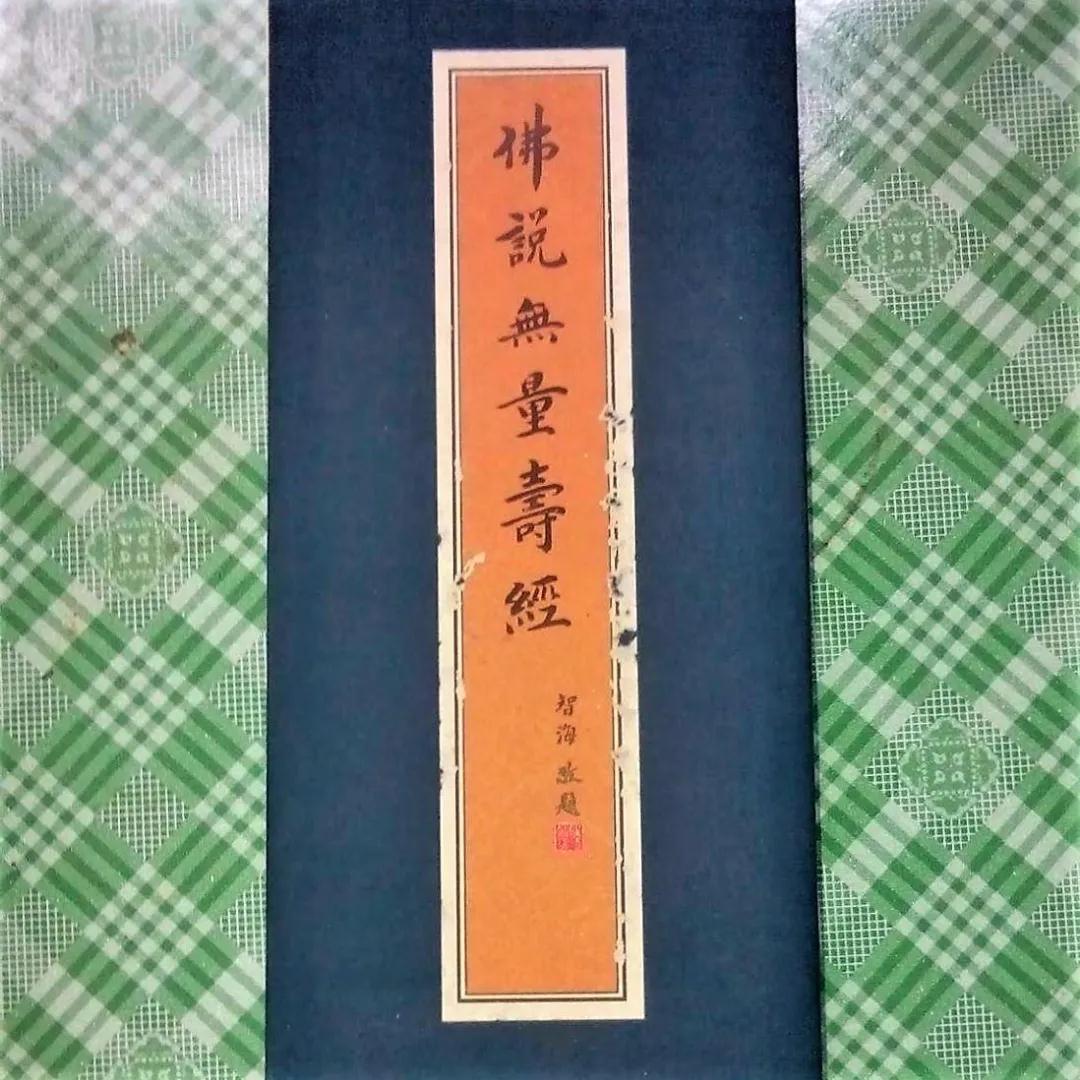 佛說無量壽經
智海敬題